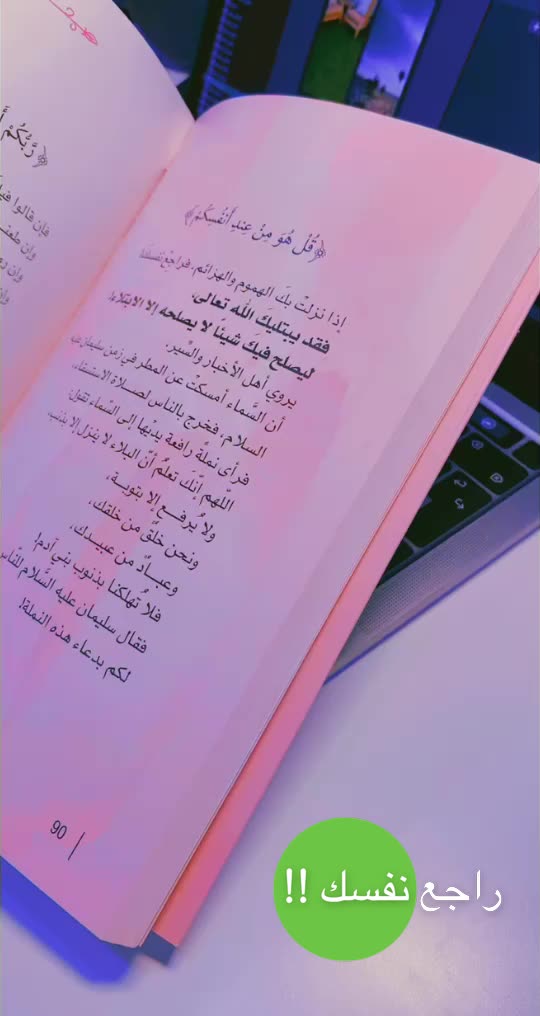 ﴿قُلْ هُوَ مِنْ عِندِ أَنفُسِكُمْ﴾
إذا نزلتْ بكَ الهموم والهزائم، فراجع نفسكَ
فقد يبتليكَ الله تعالى،
ليصلح فيكَ شيئًا لا يصلحه إلا الابتلاء!
يروي أهل الأخبار والسِّير،
أن السَّماء أمسكتْ عن المطر في زمن سليمان عليه
السلام، فخرج بالناس لصلاة الاستسقاء،
فرأى نملةً رافعة يديْها إلى السماء تقول:
اللّهم إنّكَ تعلمُ أنّ البلاء لا ينزل إلا بذنب،
ولا يُرفع إلا بتوبة،
ونحن خلْقٌ من خلقك،
وعبادٌ من عبيدك،
فلا تُهلكنا بذنوب بني آدم!
فقال سليمان عليه السَّلام للنّاس
لكم بدعاء هذه النملة!
90
رَبُّكُمْ
فإن قالوا
وإن
وإن
راجع نفسك !!